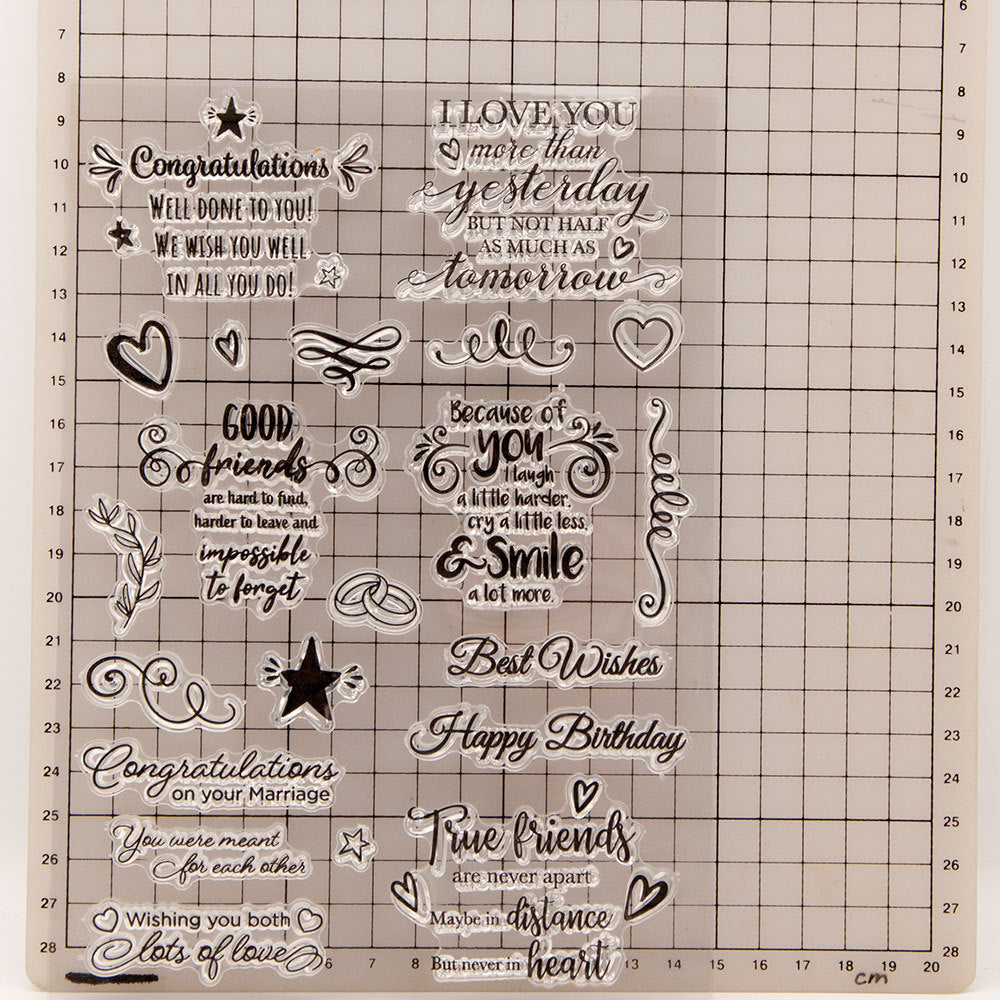 6
7
7
8
8
9
9
10
10
11
11
12
12
13
13
14
14
15
15
16
16
17
17
18
18
19
19
20
20
21
21
22
22
23
23
24
24
25
25
26
26
27
27
28
28
Congratulations
WELL DONE TO YOU!
WE WISH YOU WELL
IN ALL YOU DO!
I LOVE YOU
more than
yesterday
BUT NOT HALF
AS MUCH AS
tomorrow
GOOD
friends
are hard to find,
harder to leave and
impossible
to forget
Because of
YOU
I laugh
a little harder,
cry a little less,
& Smile
a lot more.
Best Wishes
Happy Birthday
Congratulations
on your Marriage
You were meant
for each other
Wishing you both
lots of love
True friends
are never apart
Maybe in distance
But never in heart
6 7 8 13 14 15 16 17 18 19 20
cm